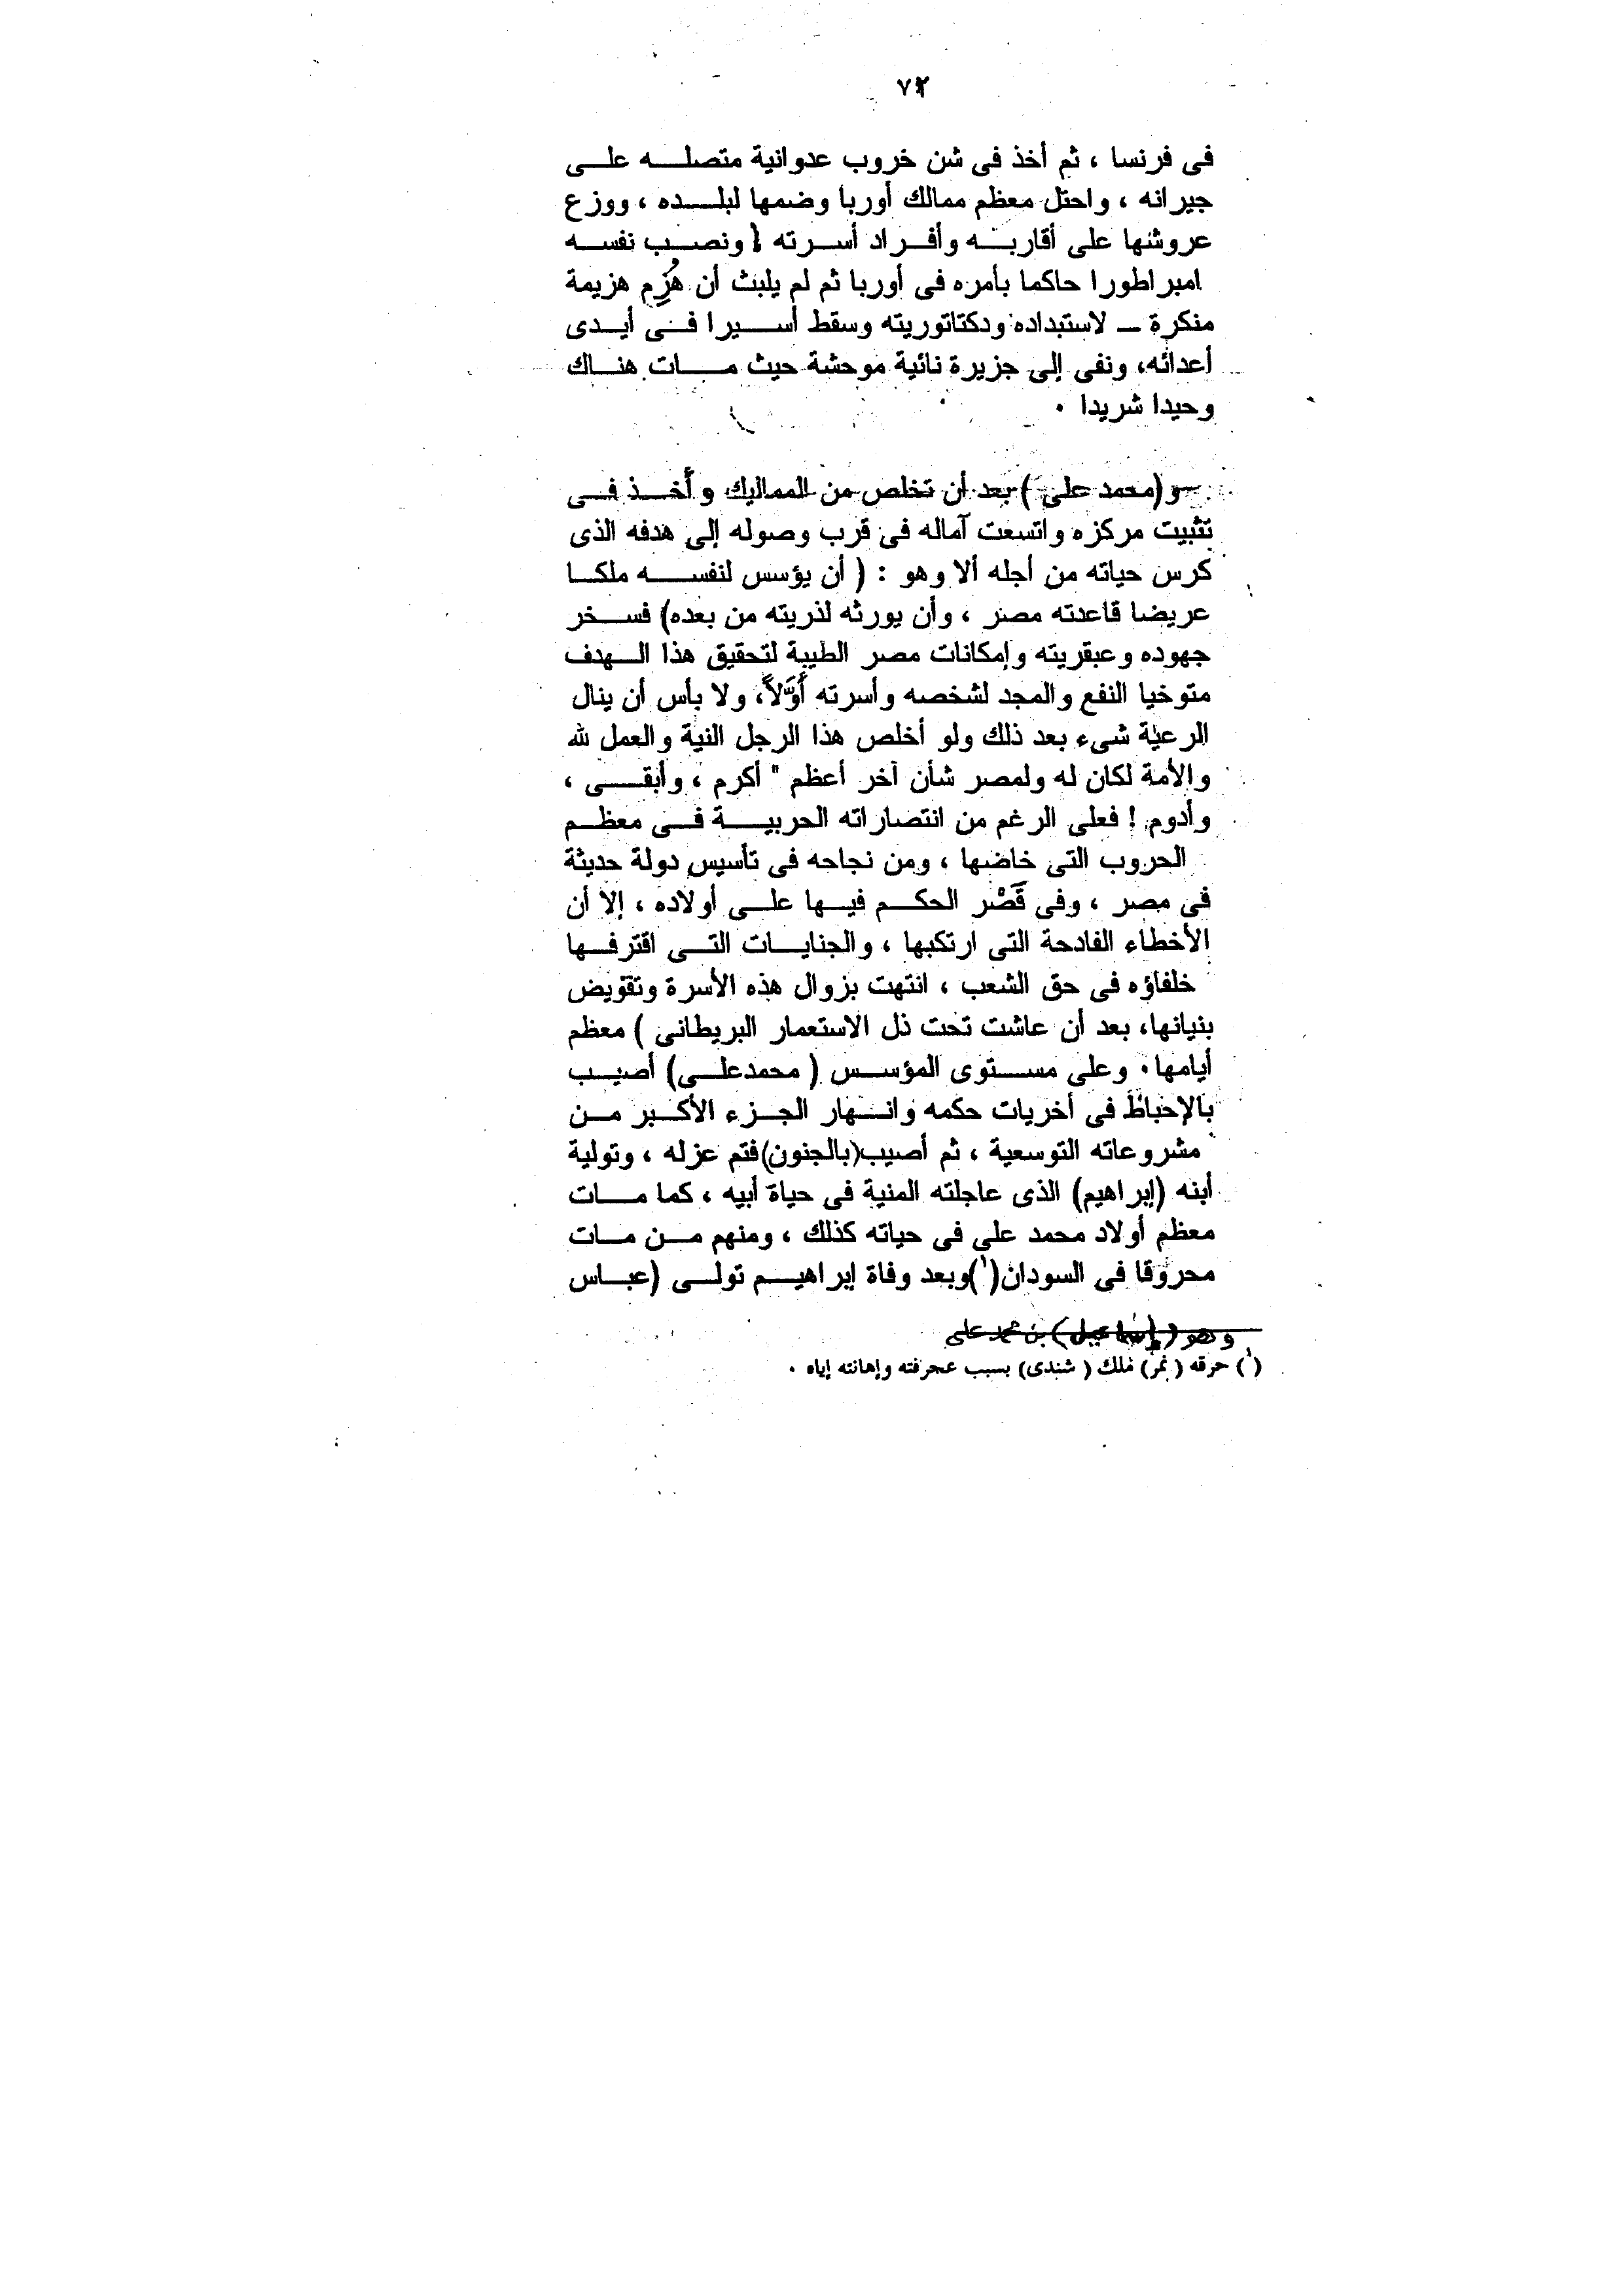 ٧٢
فى فرنسا ، ثم أخذ فى شن خروب عدوانية متصله على
جيرانه ، واحتل معظم ممالك أوربا وضمها لبلده ، ووزع
عروشها على أقاربه وأفراد أسرته ! ونصب نفسه
امبراطورا حاكما بأمره فى أوربا ثم لم يلبث أن هُزِم هزيمة
منكرة – لاستبداده ودكتاتوريته وسقط أسيرا فى أيدى
أعدائه، ونفى إلى جزيرة نائية موحشة حيث مات هناك
وحيدا شريدا .
و(محمد على) بعد أن تخلص من المماليك وأخذ فى
تثبيت مركزه واتسعت آماله فى قرب وصوله إلى هدفه الذى
كرس حياته من أجله ألا وهو : ( أن يؤسس لنفسه ملكا
عريضا قاعدته مصر ، وأن يورثه لذريته من بعده) فسخر
جهوده وعبقريته وإمكانات مصر الطيبة لتحقيق هذا الهدف
متوخيا النفع والمجد لشخصه وأسرته أَوَّلاً، ولا بأس أن ينال
الرعية شىء بعد ذلك ولو أخلص هذا الرجل النية والعمل لله
والأمة لكان له ولمصر شأن آخر أعظم " أكرم ، وأبقى ،
وأدوم ! فعلى الرغم من انتصاراته الحربية فى معظم
الحروب التى خاضها ، ومن نجاحه فى تأسيس دولة حديثة
فى مصر ، وفى قَصْر الحكم فيها على أولاده ، إلا أن
الأخطاء الفادحة التى ارتكبها ، والجنايات التى اقترفها
خلفاؤه فى حق الشعب ، انتهت بزوال هذه الأسرة وتقويض
بنيانها، بعد أن عاشت تحت ذل الاستعمار البريطانى ) معظم
أيامها . وعلى مستوى المؤسس ( محمدعلى) أصيب
بالإحباط فى أخريات حكمه وانهار الجزء الأكبر من
مشروعاته التوسعية ، ثم أصيب(بالجنون)فتم عزله ، وتولية
أبنه (إبراهيم) الذى عاجلته المنية فى حياة أبيه ، كما مات
معظم أولاد محمد على فى حياته كذلك ، ومنهم من مات
محروقا فى السودان(١)وبعد وفاة إبراهيم تولى (عباس
وهو (إسماعيل) بن محمد على
(١) حرقه ( نمر) ملك ( شندى) بسبب عجرفته وإهانته إياه .